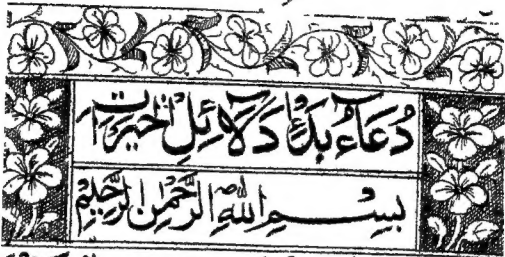 دُعَآءُ بَدْءِ دَلَآئِلِ الْخَيْرَاتِ
بِسْمِ اللّٰهِ الرَّحْمٰنِ الرَّحِيْمِ